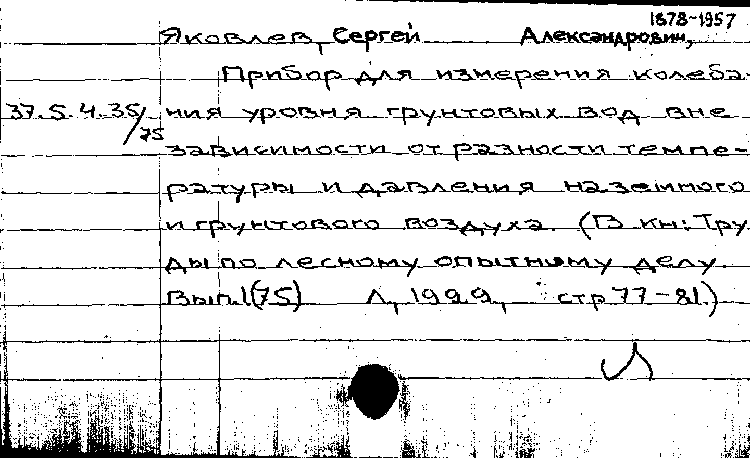 1878-1957
Яковлев, Сергей Александрович,
Прибор для измерения колеба-
37.5.4.35/75 ния уровня грунтовых вод вне
зависимости от разности темпе-
ратуры и давления наземного
и грунтового воздуха. (В кн: Тру
ды по лесному опытному делу.
Вып.1(75) Л, 1929, стр 77-81.)